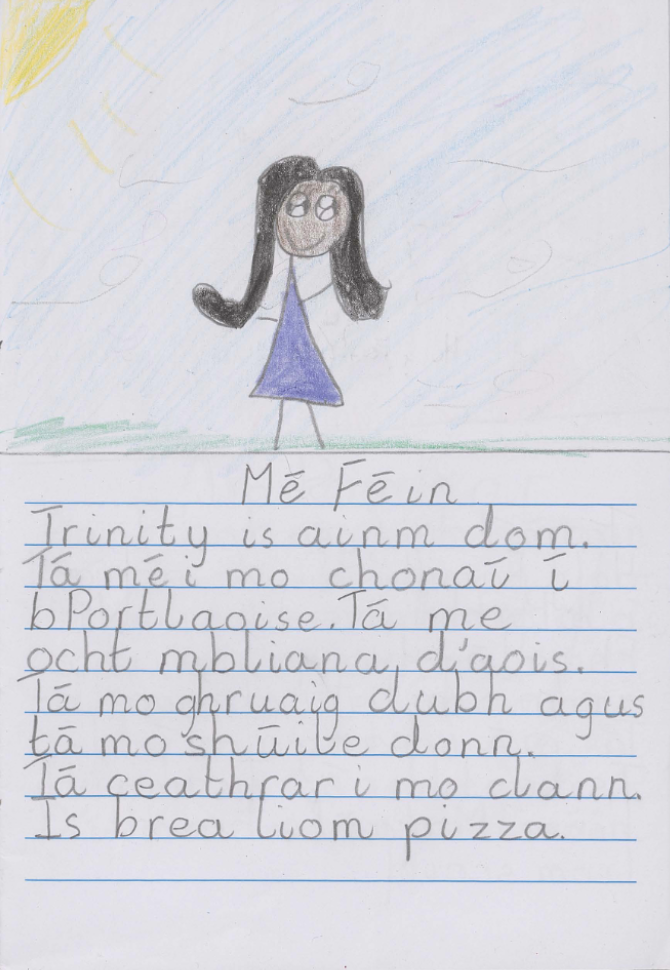 Mē Fēin
Trinity is ainm dom.
Tá mé i mo chonaī ī
bPortlaoise. Tá me
ocht mbliana d'aois.
Tá mo ghruaig dubh agus
tā mo shūile donn.
Tá ceathrar i mo clann.
Is brea liom pizza.